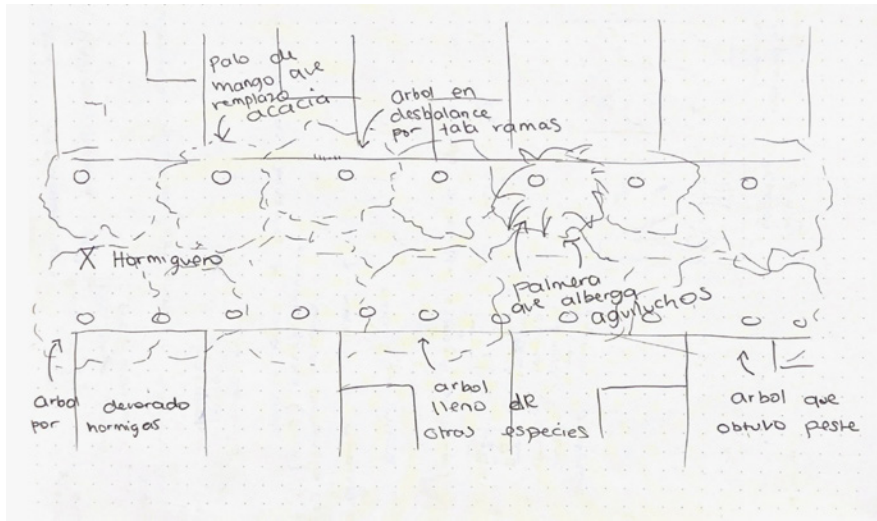 palo de
mango que
remplazo
acacia
arbol en
desbalance
por tala ramas
X Hormiguero
palmera
que alberga
aguiluchos
arbol devorado
por hormigas
arbol
lleno de
otras especies
arbol que
obtuvo peste